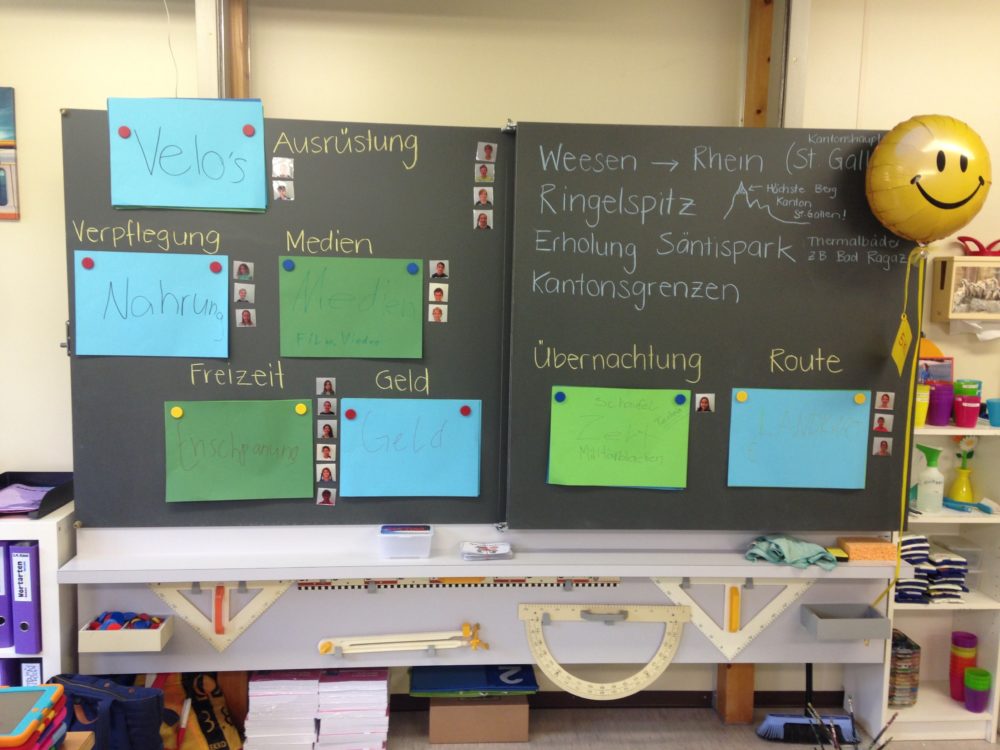 Velo's
Ausrüstung
Verpflegung
Medien
Nahrung
Medien
Film Vieder
Freizeit
Geld
Enschpanung
Geld
Kantonshaupt
Weesen → Rhein (St. Gall
Ringelspitz
Höchste Berg
Kanton
St. Gallen!
Erholung Säntispark
Thermalbäder
z.B Bad Ragaz
Kantonsgrenzen
Übernachtung
Route
Schlafsäl
Zelt
Militärblachen
Wortarten
2